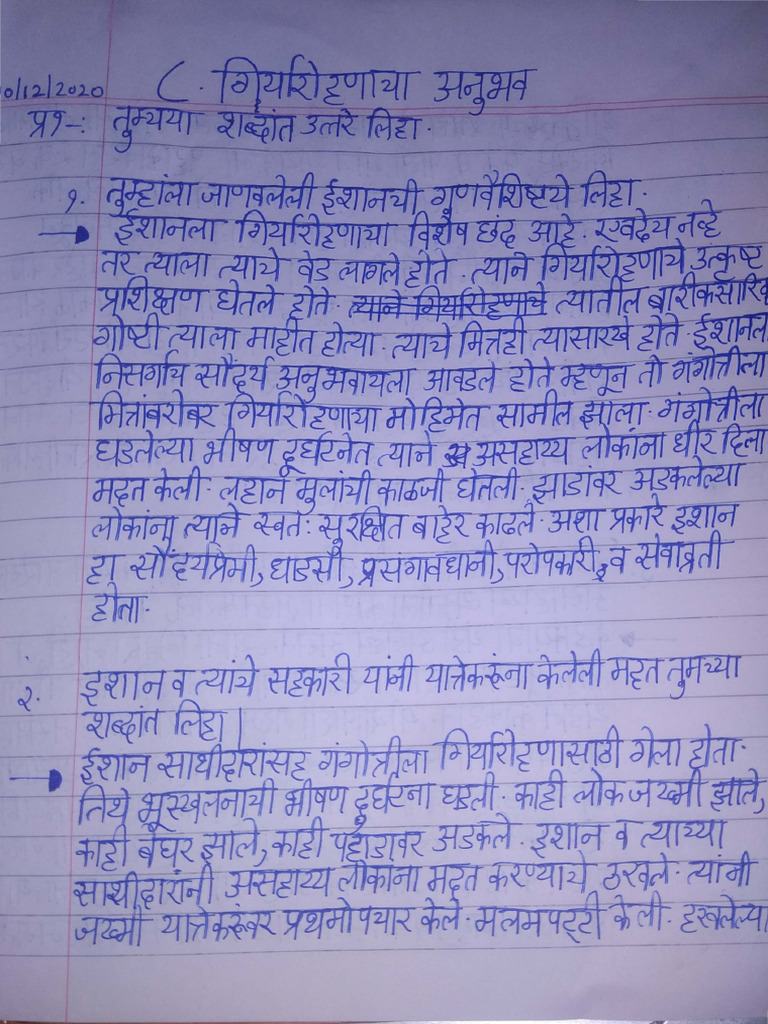 ०/12/2020 ८. गिर्यारोहणाचा अनुभव
प्र१-: तुमच्या शब्दांत उत्तरे लिहा.
१. तुम्हांला जाणवलेली ईशानची गुणवैशिष्ट्ये लिहा.
→ ईशानला गिर्यारोहणाचा विशेष छंद आहे. एवढेच नव्हे
तर त्याला त्याचे वेड लागले होते. त्याने गिर्यारोहणाचे उत्कृष्ट
प्रशिक्षण घेतले होते. त्याने गिर्यारोहणाचे त्यातील बारीकसारिक
गोष्टी त्याला माहीत होत्या. त्याचे मित्रही त्यासारखे होते. ईशानल
निसर्गाचे सौंदर्य अनुभवायला आवडले होते म्हणून तो गंगोत्रीला
मित्रांबरोबर गिर्यारोहणाच्या मोहिमेत सामील झाला. गंगोत्रीला
घडलेल्या भीषण दुर्घटनेत त्याने असहाय्य लोकांना धीर दिला
मदत केली. लहान मुलांची काळजी घेतली. झाडांवर अडकलेल्या
लोकांना त्याने स्वत: सुरक्षित बाहेर काढले. अशा प्रकारे इशान
हा सौंदर्यप्रेमी, धाडसी, प्रसंगावधानी, परोपकारी, व सेवाव्रती
होता.
२. इशान व त्यांचे सहकारी यांनी यात्रेकरूंना केलेली मदत तुमच्या
शब्दांत लिहा|
→ ईशान साथीदारांसह गंगोत्रीला गिर्यारोहणासाठी गेला होता.
तिथे भूस्खलनाची भीषण दुर्घटना घडली. काही लोक जख्मी झाले,
काही बेघर झाले, काही पहाडावर अडकले. इशान व त्याच्या
साथीदारांनी असहाय्य लोकांना मदत करण्याचे ठरवले. त्यांनी
जख्मी यात्रेकरूंवर प्रथमोपचार केले. मलमपट्टी केली. हरवलेल्या